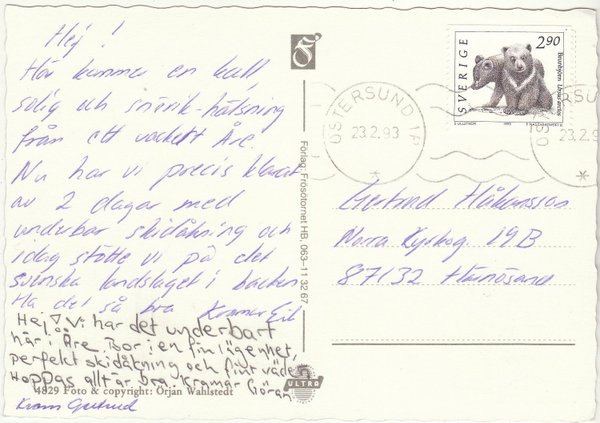 Hej!
Här kommer en kall,
solig och snörik-hälsning
från ett vackert Åre.
Nu har vi precis klarat
av 2 dagar med
underbar skidåkning och
idag stötte vi på det
svenska landslaget i backen
Ha det så bra Kramar
Hej! Vi har det underbart
här i Åre. Bor i en fin lägenhet,
perfekt skidåkning och fint väder
Hoppas allt är bra Kramar Göran
4829 Foto & copyright: Örjan Wahlstedt
Kram Gertrud
Förlag: Frösötornet HB, 063-11 32 67
ULTRA
SVERIGE
2.90
Brunbjörn Ursus arctos
1993
ÖSTERSUND 1P
23.2.93
ÖSTERSU
23.2.9
Gertrud Håkansson
Norra Kyrkog. 19B
87132 Härnösand